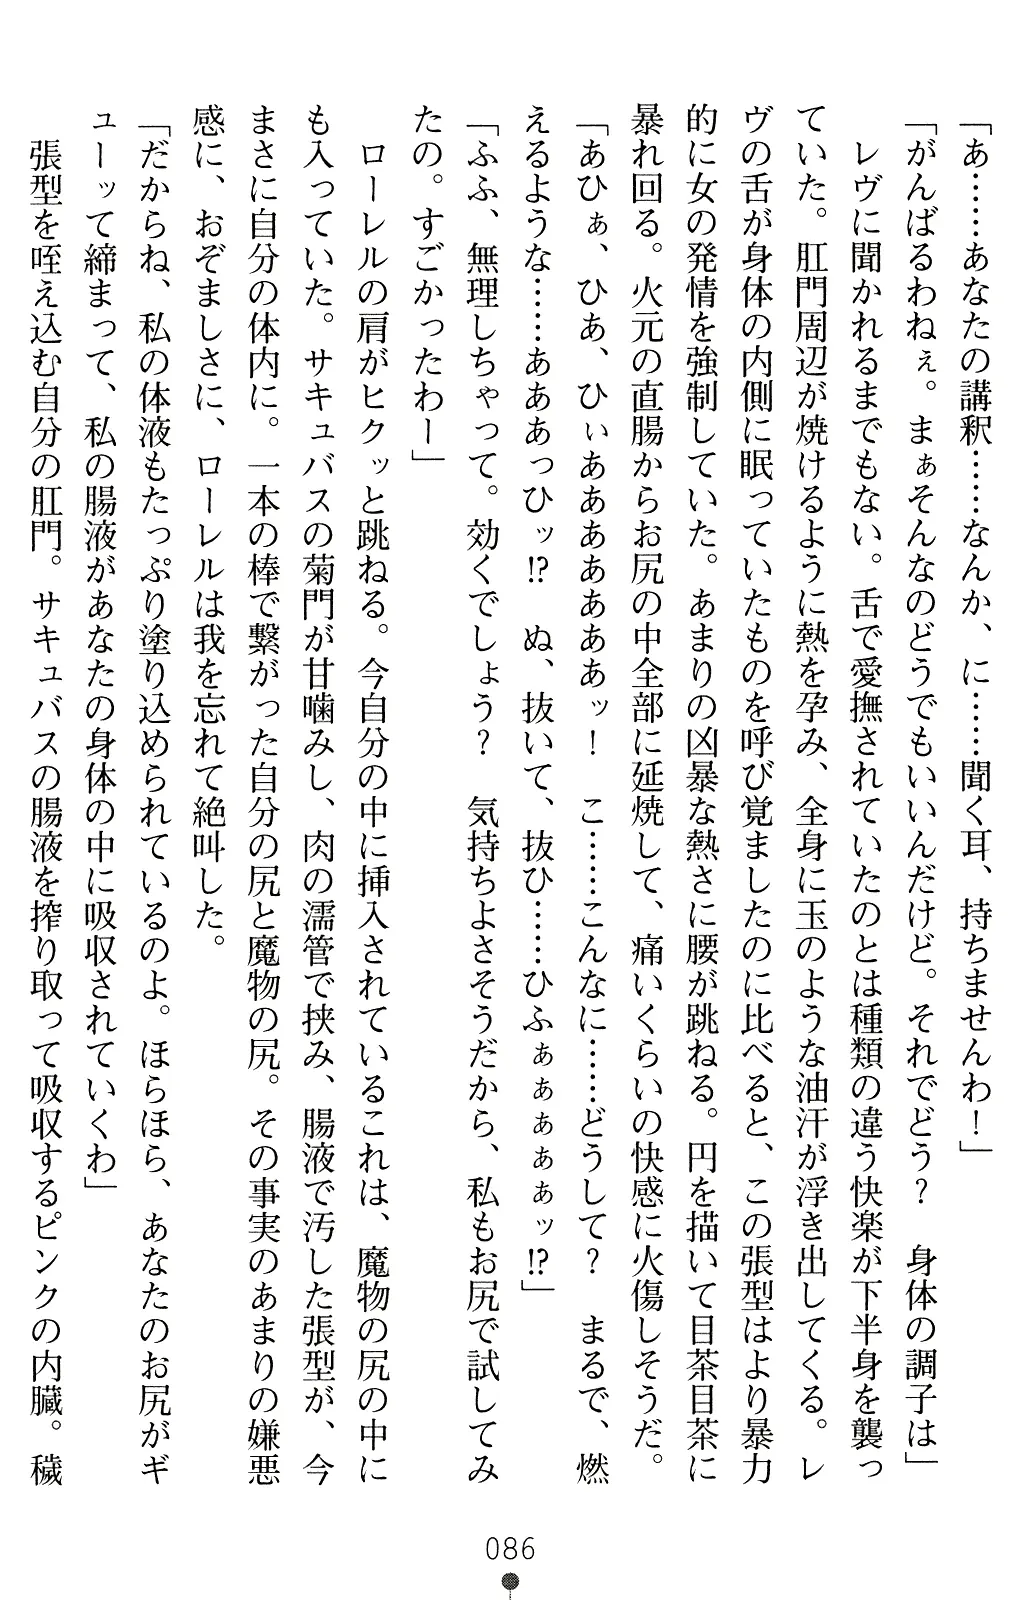 「あ……あなたの講釈……なんか、に……聞く耳、持ちませんわ！」
「がんばるわねぇ。まぁそんなのどうでもいいんだけど。それでどう？　身体の調子は」
　レヴに聞かれるまでもない。舌で愛撫されていたのとは種類の違う快楽が下半身を襲っ
ていた。肛門周辺が焼けるように熱を孕み、全身に玉のような油汗が浮き出してくる。レ
ヴの舌が身体の内側に眠っていたものを呼び覚ましたのに比べると、この張型はより暴力
的に女の発情を強制していた。あまりの凶暴な熱さに腰が跳ねる。円を描いて目茶目茶に
暴れ回る。火元の直腸からお尻の中全部に延焼して、痛いくらいの快感に火傷しそうだ。
「あひぁ、ひあ、ひぃああああああぁッ！　こ……こんなに……どうして？　まるで、燃
えるような……あああっひッ⁉　ぬ、抜いて、抜ひ……ひふぁぁぁぁぁッ⁉」
「ふふ、無理しちゃって。効くでしょう？　気持ちよさそうだから、私もお尻で試してみ
たの。すごかったわー」
　ローレルの肩がヒクッと跳ねる。今自分の中に挿入されているこれは、魔物の尻の中に
も入っていた。サキュバスの菊門が甘噛みし、肉の濡管で挟み、腸液で汚した張型が、今
まさに自分の体内に。一本の棒で繋がった自分の尻と魔物の尻。その事実のあまりの嫌悪
感に、おぞましさに、ローレルは我を忘れて絶叫した。
「だからね、私の体液もたっぷり塗り込められているのよ。ほらほら、あなたのお尻がギ
ューッて締まって、私の腸液があなたの身体の中に吸収されていくわ」
　張型を咥え込む自分の肛門。サキュバスの腸液を搾り取って吸収するピンクの内臓。穢
086